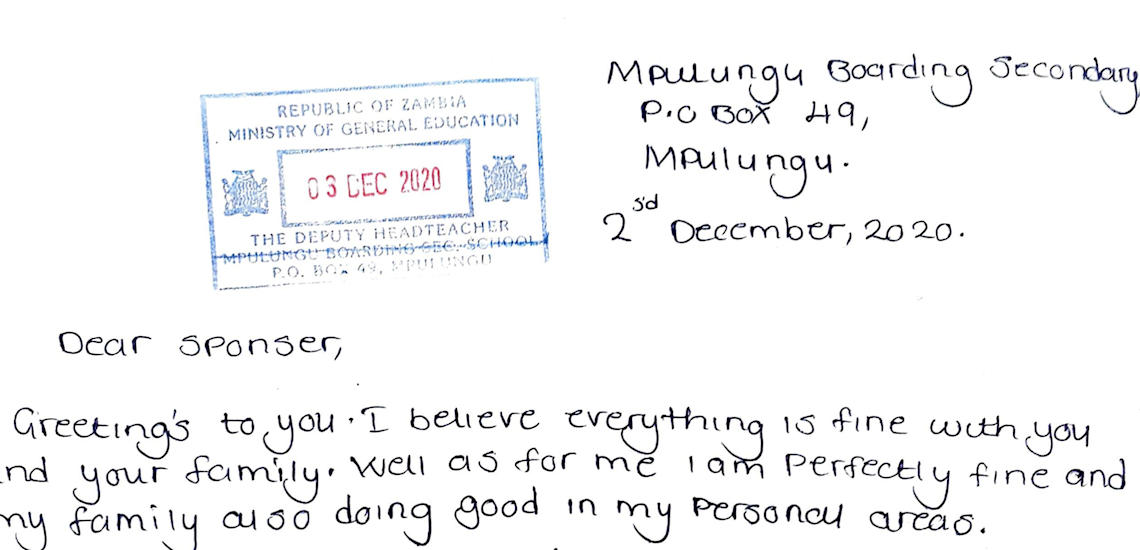 Mpulungu Boarding Secondary
P.O BOX 49,
Mpulungu.
2sd December, 2020.
REPUBLIC OF ZAMBIA
MINISTRY OF GENERAL EDUCATION
03 DEC 2020
THE DEPUTY HEADTEACHER
MPULUNGU BOARDING SEC. SCHOOL
P.O. BOX 49, MPULUNGU
Dear sponser,
Greeting's to you. I believe everything is fine with you
nd your family. Well as for me I am Perfectly fine and
my family also doing good in my Personal areas.